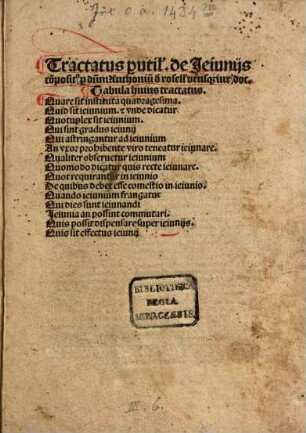 Tractatus putil'. de Jeiunijs
cõposit'. p dñm Anthoniũ d rosell' vtriusqz iur'. doc.
Tabula huius tractatus.
Quare sit instituta quadragesima.
Quid sit ieiunium. & vnde dicatur
Quotuplex sit ieiunium.
Qui sint gradus ieiunij
Qui astringantur ad ieiunium
An vxor prohibente viro teneatur ieiunare.
Qualiter obseruetur ieiunium
Quomodo dicatur quis recte ieiunare.
Quot requirantur in ieiunio
De quibus debet esse comestio in ieiunio.
Quando ieiunium frangatur
Qui dies sunt ieiunandi
Ieiunia an possint commutari.
Quis possit dispensare super ieiunijs.
Quis sit effectus ieiunij
BIBLIOTHECA
REGIA
MONACENSIS.